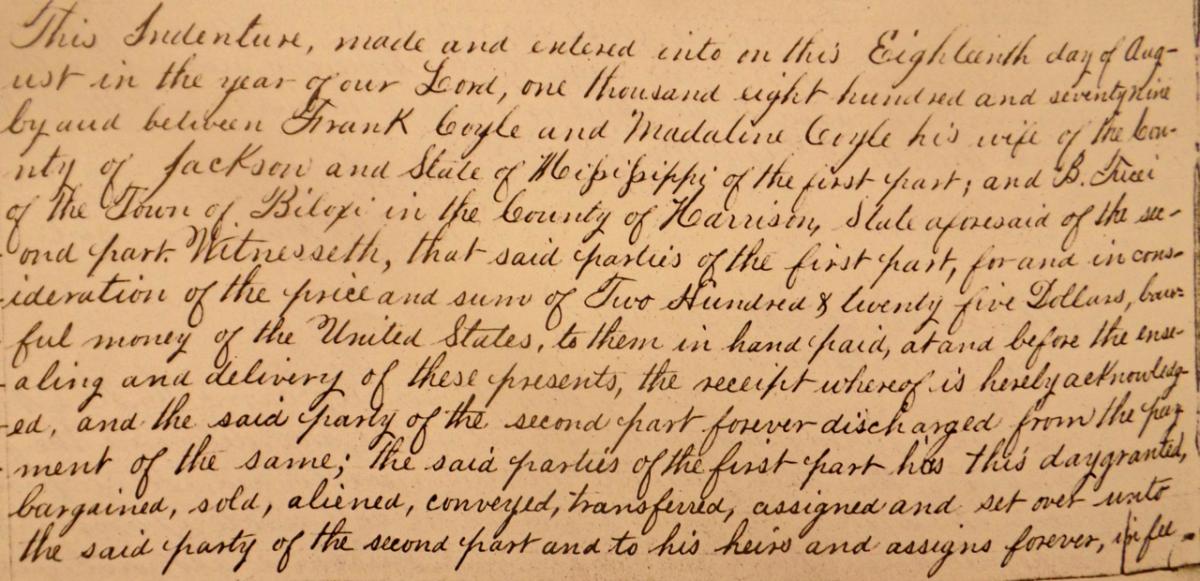 This Indenture, made and entered into on this Eighteenth day of Aug-
ust in the year of our Lord, one thousand eight hundred and seventy nine
by and between Frank Coyle and Madaline Coyle his wife of the Cou-
nty of Jackson and State of Mississippi of the first part; and B.
of the Town of Biloxi in the County of Harrison, State aforesaid of the sec-
ond part. Witnesseth, that said parties of the first part, for and in cons-
-ideration of the price and sum of Two Hundred & twenty five Dollars, law-
ful money of the United States, to them in hand paid, at and before the ense-
-aling and delivery of these presents, the receipt whereof is hereby acknowledg-
-ed, and the said party of the second part forever discharged from the pay-
-ment of the same; the said parties of the first part has this day granted,
bargained, sold, aliened, conveyed, transferred, assigned and set over unto
the said party of the second part and to his heirs and assigns forever, in fee